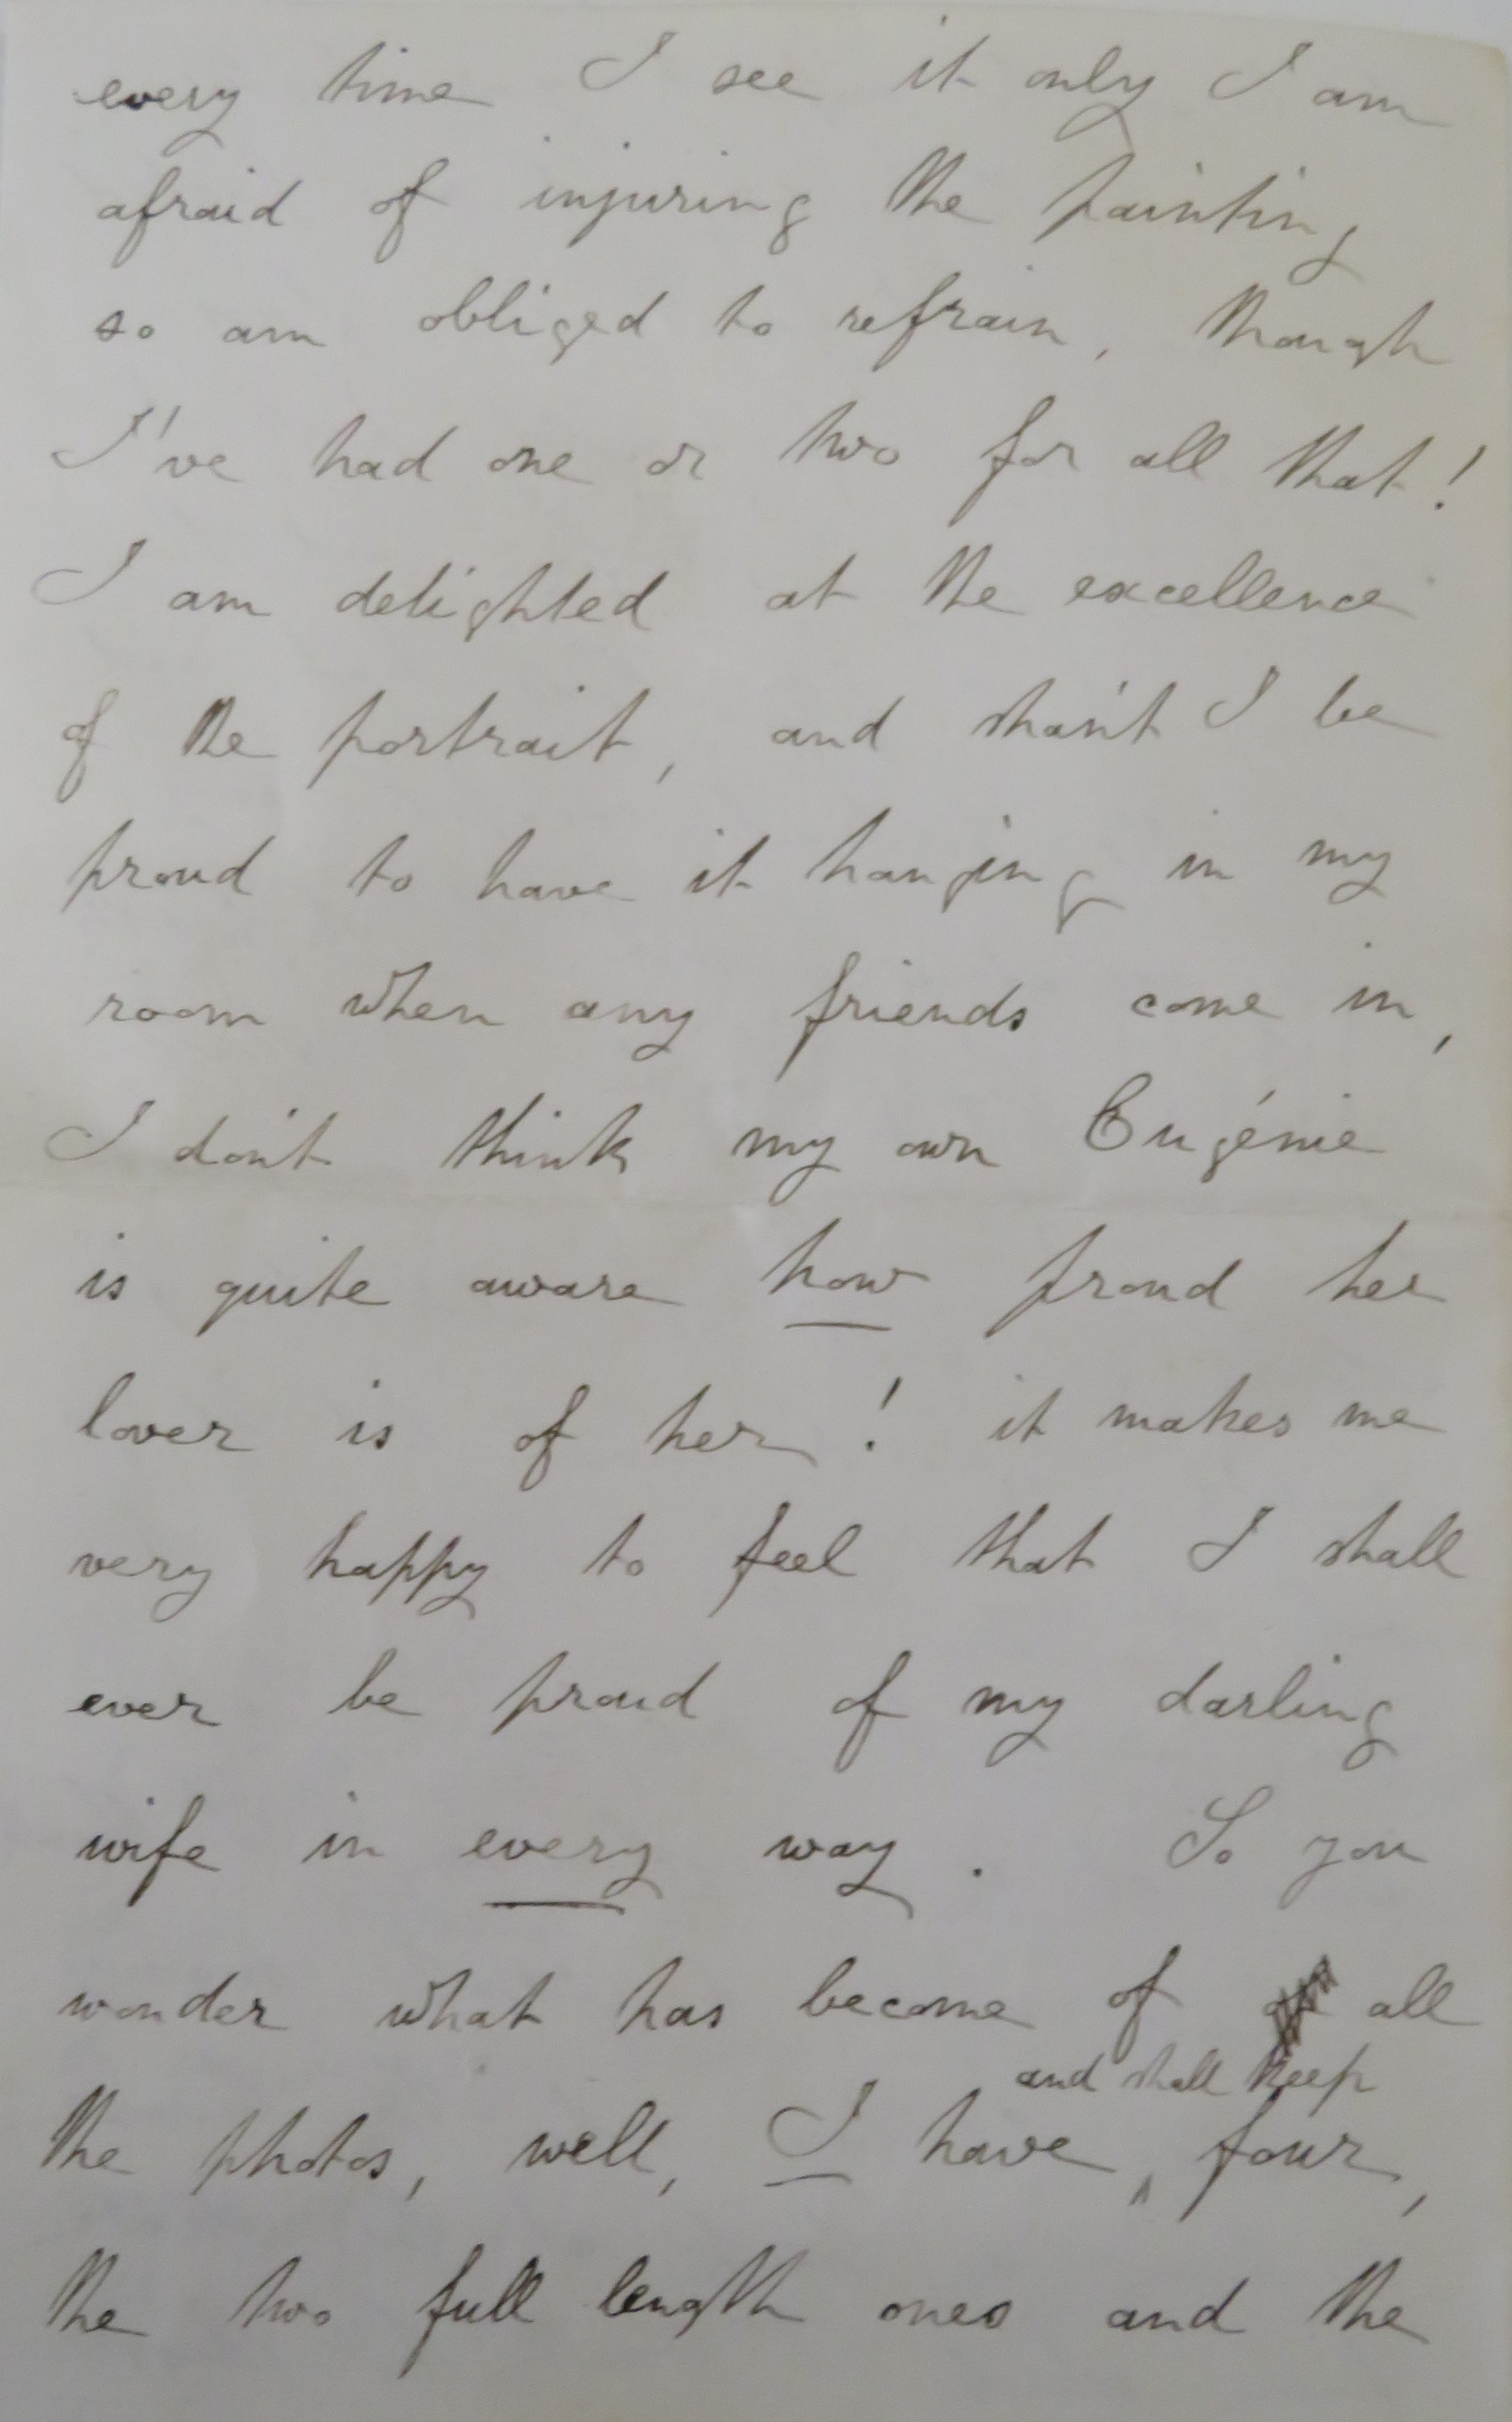 every time I see it only I am
afraid of injuring the painting
so am obliged to refrain, though
I've had one or two for all that!
I am delighted at the excellence
of the portrait, and shan't I be
proud to have it hanging in my
room when any friends come in,
I don't think my own Eugénie
is quite aware how proud her
lover is of her! it makes me
very happy to feel that I shall
ever be proud of my darling
wife in every way. So you
wonder what has become of all
and shall keep
the photos, well, I have ‸ four,
the two full length ones and the